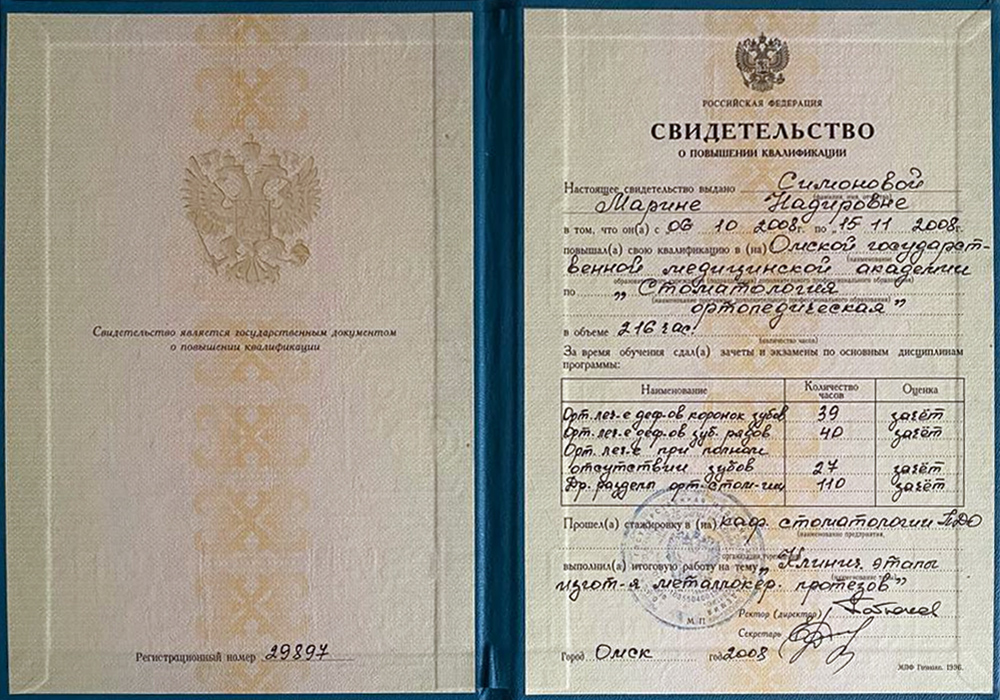 Свидетельство является государственным документом
о повышении квалификации
Регистрационный номер 29897
РОССИЙСКАЯ ФЕДЕРАЦИЯ
СВИДЕТЕЛЬСТВО
О ПОВЫШЕНИИ КВАЛИФИКАЦИИ
Настоящее свидетельство выдано Симоновой
Марине Надировне
в том, что он(а) с 06 10 2008г. по „15 11 2008г.
повышал(а) свою квалификацию в (на) Омской государст-
венной медицинской академии
по „Стоматология
ортопедическая"
в объеме 216 час.
(количество часов)
За время обучения сдал(а) зачеты и экзамены по основным дисциплинам
программы:
Наименование Количество часов Оценка
Орт. леч-е деф-ов коронок зубов 39 зачёт
Орт. леч-е деф-ов зуб. рядов 40 зачёт
Орт. леч-е при полном
отсутствии зубов 27 зачёт
Др. разделы орт. стом-гии 110 зачёт
Прошел(а) стажировку в (на) каф. стоматологии ПДО
(наименование предприятия,
выполнил(а) итоговую работу на тему „Клинич. этапы
изгот-я металлокер. протезов"
М. П.
Ректор (директор)
Секретарь
Город Омск год 2008